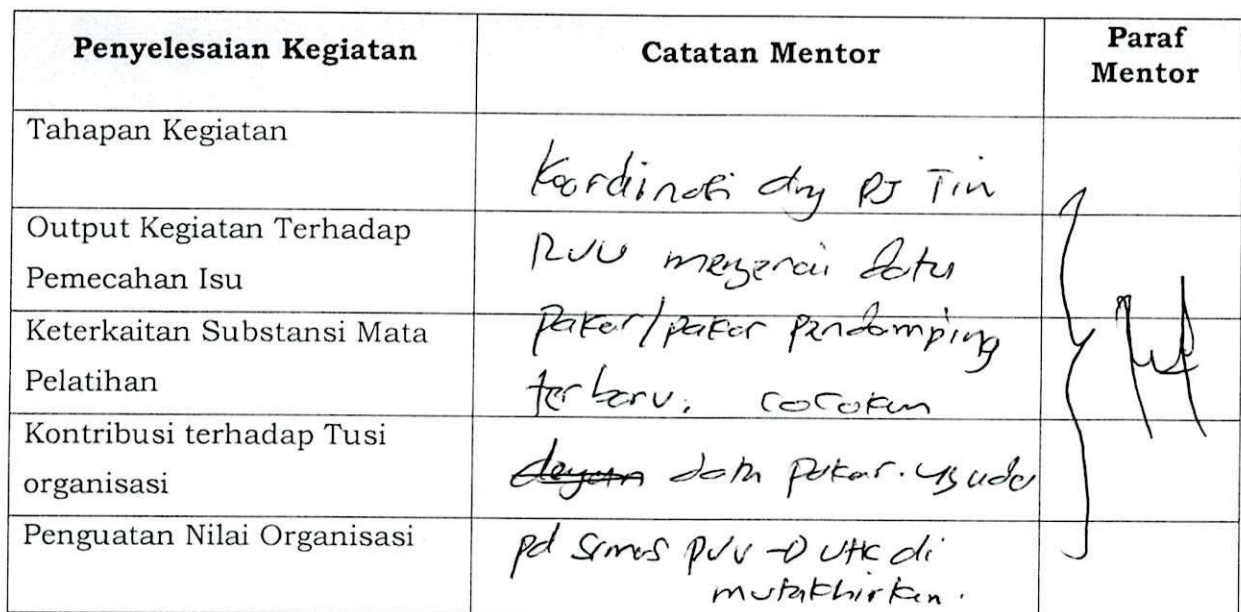 Penyelesaian Kegiatan
Catatan Mentor
Paraf
Mentor
Tahapan Kegiatan
Koordinasi dng PJ Tim
Output Kegiatan Terhadap
Pemecahan Isu
mengenai data
Keterkaitan Substansi Mata
Pelatihan
pakar/pakar pendamping
terbaru, cocokan
Kontribusi terhadap Tusi
organisasi
dengan data pakar. yg ada
Penguatan Nilai Organisasi
pd utk di
mutakhirkan.